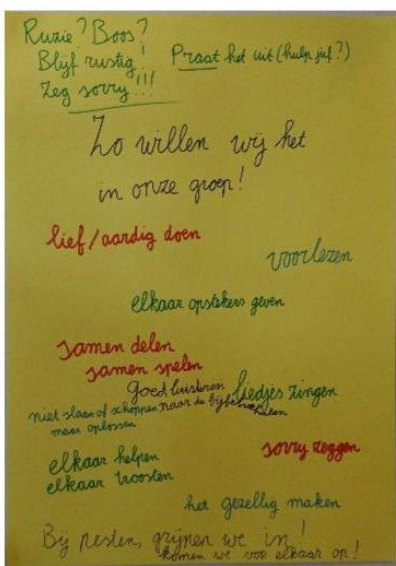 Ruzie? Boos?
Blijf rustig
Praat het uit (hulp juf?)
Zeg sorry!!!
Zo willen wij het
in onze groep!
lief/aardig doen
voorlezen
elkaar opstekers geven
samen delen
samen spelen
goed luisteren
naar de bijbelverhalen
liedjes zingen
niet slaan of schoppen
maar oplossen
sorry zeggen
elkaar helpen
elkaar troosten
het gezellig maken
Bij pesten, grijpen we in!
komen we voor elkaar op!